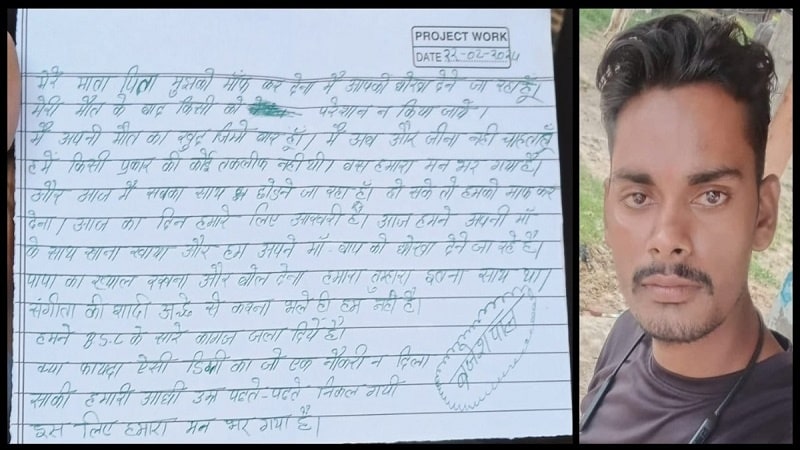 PROJECT WORK
DATE 22-02-2024
मेरे माता पिता मुझको माँफ कर देना मैं आपको धोखा देने जा रहा हूँ।
मेरी मौत के बाद किसी को परेशान न किया जाये।
मैं अपनी मौत का खुद जिम्मे वार हूँ। मैं अब और जीना नही चाहता हूँ
हमें किसी प्रकार की कोई तकलीफ नही थी। बस हमारा मन भर गया है।
और आज मैं सबका साथ छोडने जा रहा हूँ। हो सके तो हमको माफ कर
देना। आज का दिन हमारे लिए आखरी है। आज हमने अपनी माँ
के साथ खाना खाया और हम अपने माँ बाप को धोखा देने जा रहे है।
पापा का ख्याल रखना और बोल देना हमारा तुम्हारा इतना साथ था।
संगीता की शादी अच्छे से करना भले ही हम नही है।
हमने B.S.C के सारे कागज जला दिये है
क्या फायदा ऐसी डिग्री का जो एक नौकरी न दिला
सकी हमारी आधी उम्र पढते-पढते निकल गयी
इस लिए हमारा मन भर गया है।
बृजेश पाल